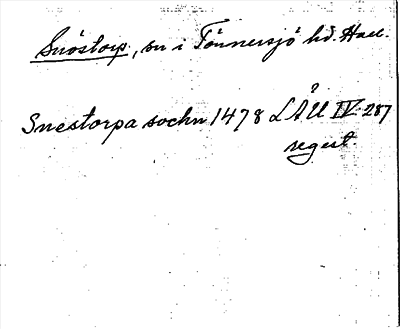 Snöstorp, sn i Tönnersjö hd. Hall.
Snestorpa sochn 1478 LÅU IV 287
regest.